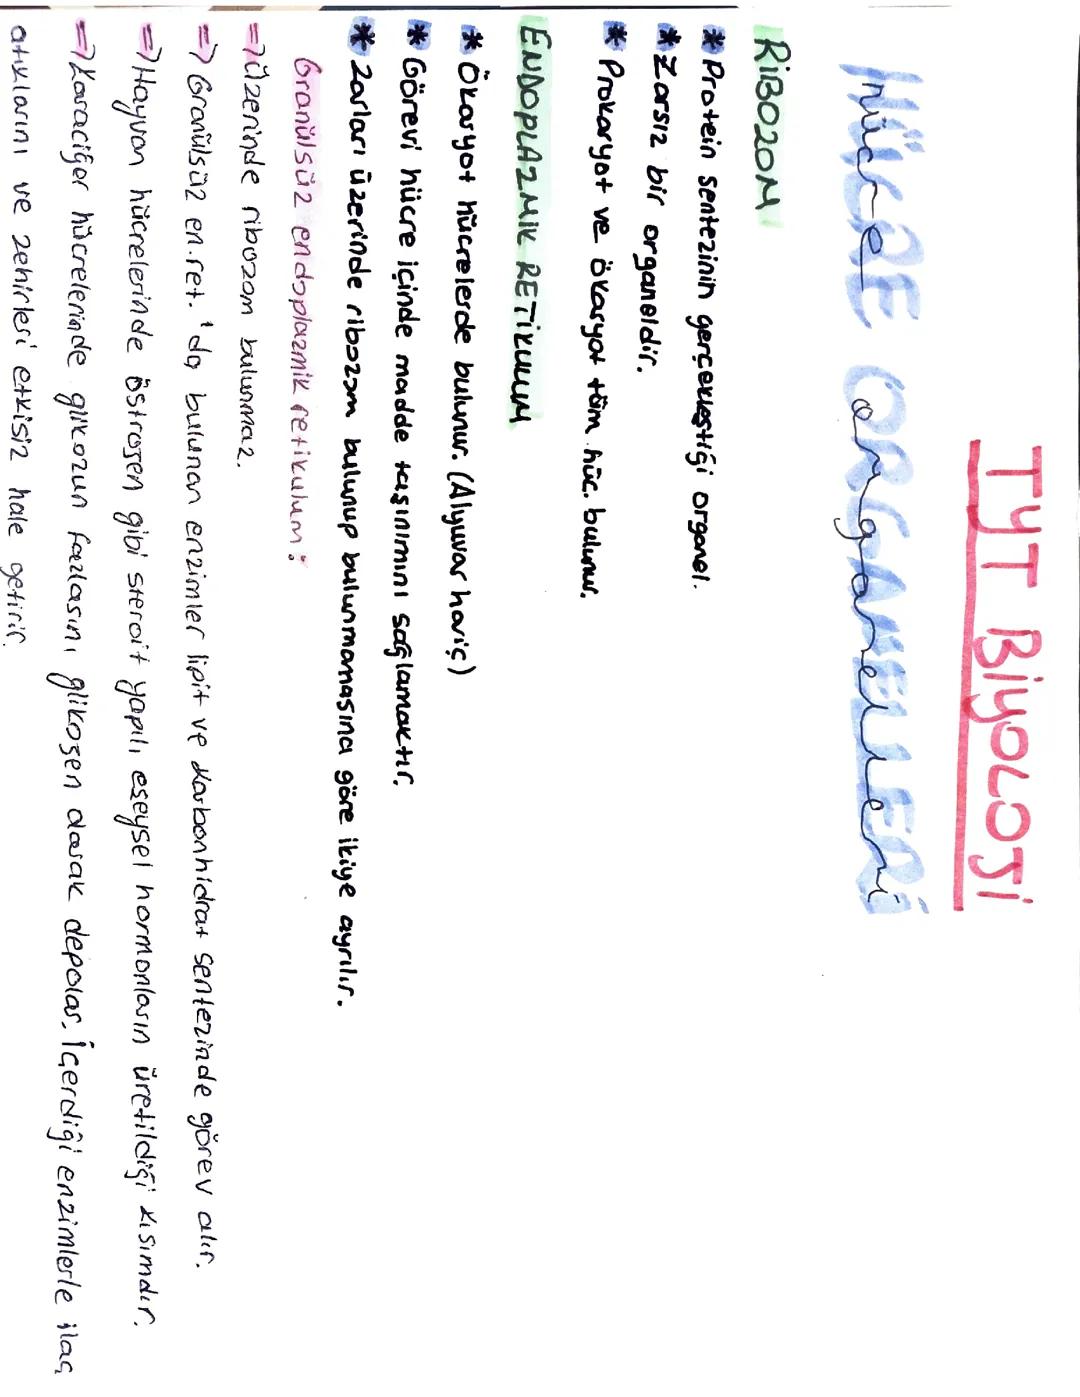 TYT BİYOLOJİ
HÜCRE ORGANELLERİ
Hücre organelleri
RİBOZOM
* Protein sentezinin gerçekleştiği organel.
* Zarsız bir organeldir.
* Prokaryot ve ökaryot tüm hüc. bulunur.
ENDOPLAZMİK RETİKULUM
* Ökaryot hücrelerde bulunur. (Alyuvar hariç)
* Görevi hücre içinde madde taşınımını sağlamaktır.
* Zarları üzerinde ribozom bulunup bulunmamasına göre ikiye ayrılır.
Granülsüz endoplazmik retikulum:
=> Üzerinde ribozom bulunmaz.
=> Granülsüz en.ret.'da bulunan enzimler lipit ve karbonhidrat sentezinde görev alır.
=> Hayvan hücrelerinde östrojen gibi steroit yapılı eşeysel hormonların üretildiği kısımdır.
=> Karaciğer hücrelerinde glikozun fazlasını glikojen olarak depolar. İçerdiği enzimlerle ilaç
atıklarını ve zehirleri etkisiz hale getirir.